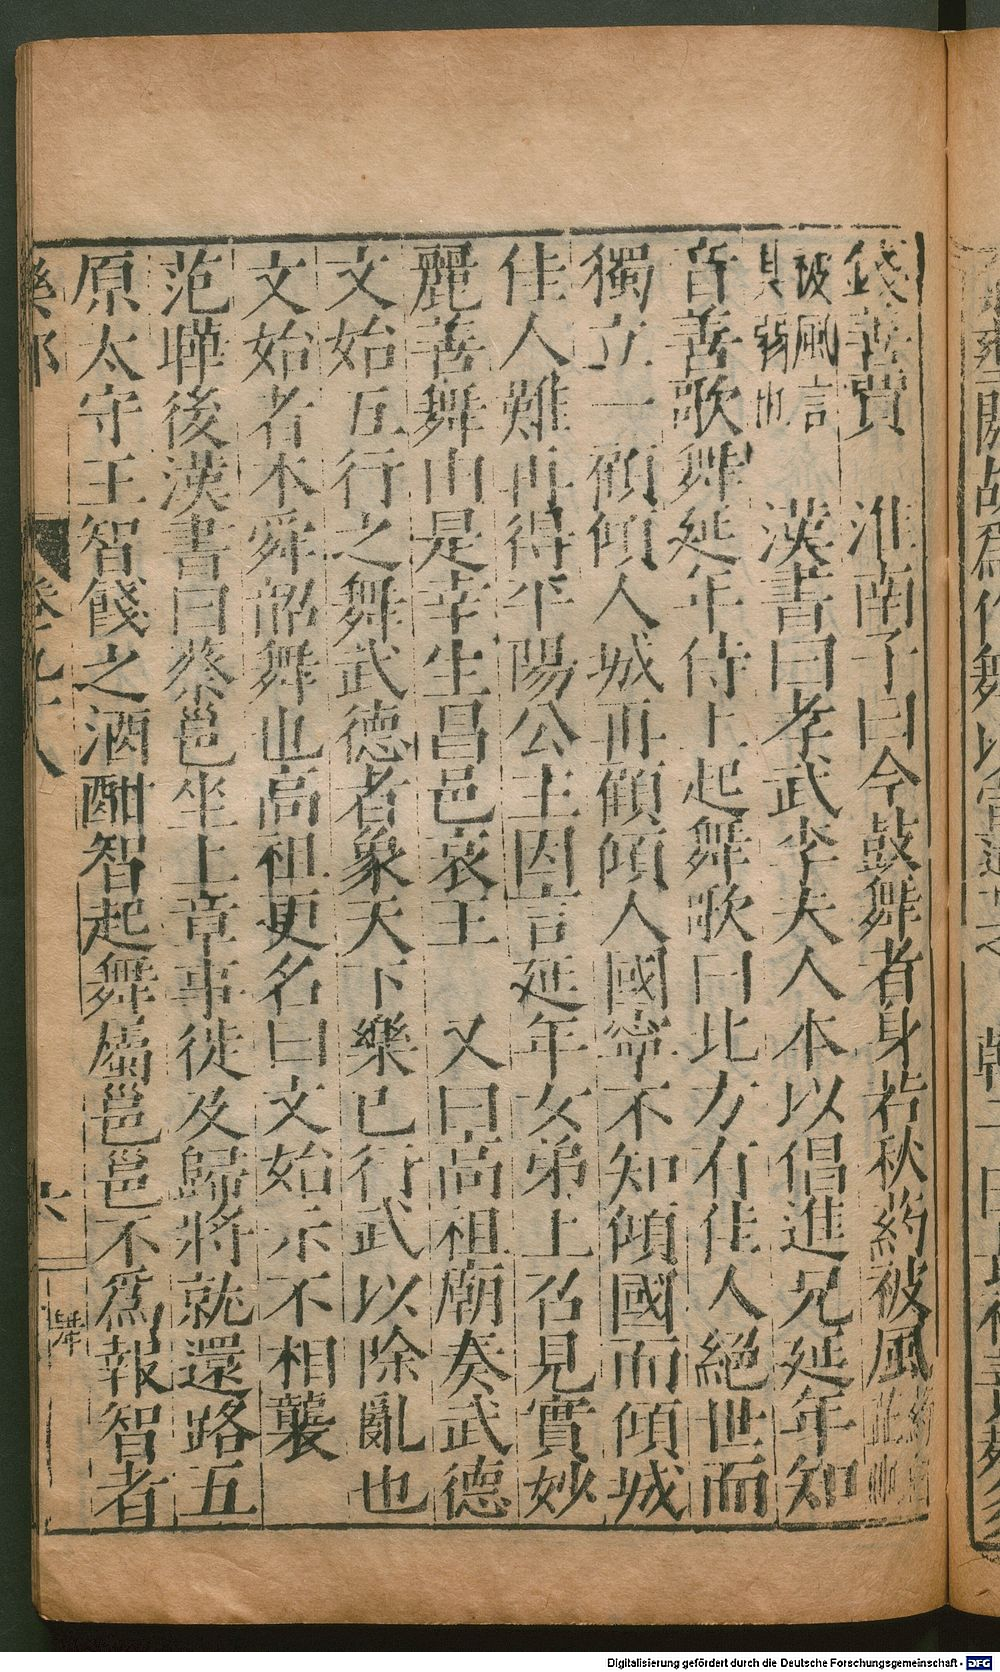 錢善賈　淮南子曰今鼓舞者身若秋葯被風
被風言
其弱也　漢書曰孝武李夫人本以倡進兄延年知
音善歌舞延年侍上起舞歌曰北方有佳人絕世而
獨立一顧傾人城再顧傾人國寧不知傾國而傾城
佳人難再得平陽公主因言延年女弟上召見實妙
麗善舞由是幸生昌邑哀王　又曰高祖廟奏武德
文始五行之舞武德者象天下樂已行武以除亂也
文始者本舜韶舞也高祖更名曰文始示不相襲
范曄後漢書曰蔡邕坐上章事徙及歸將就還路五
原太守王智餞之酒酣智起舞屬邕邕不爲報智者
樂部　卷九十八　六　舞
Digitalisierung gefördert durch die Deutsche Forschungsgemeinschaft - DFG